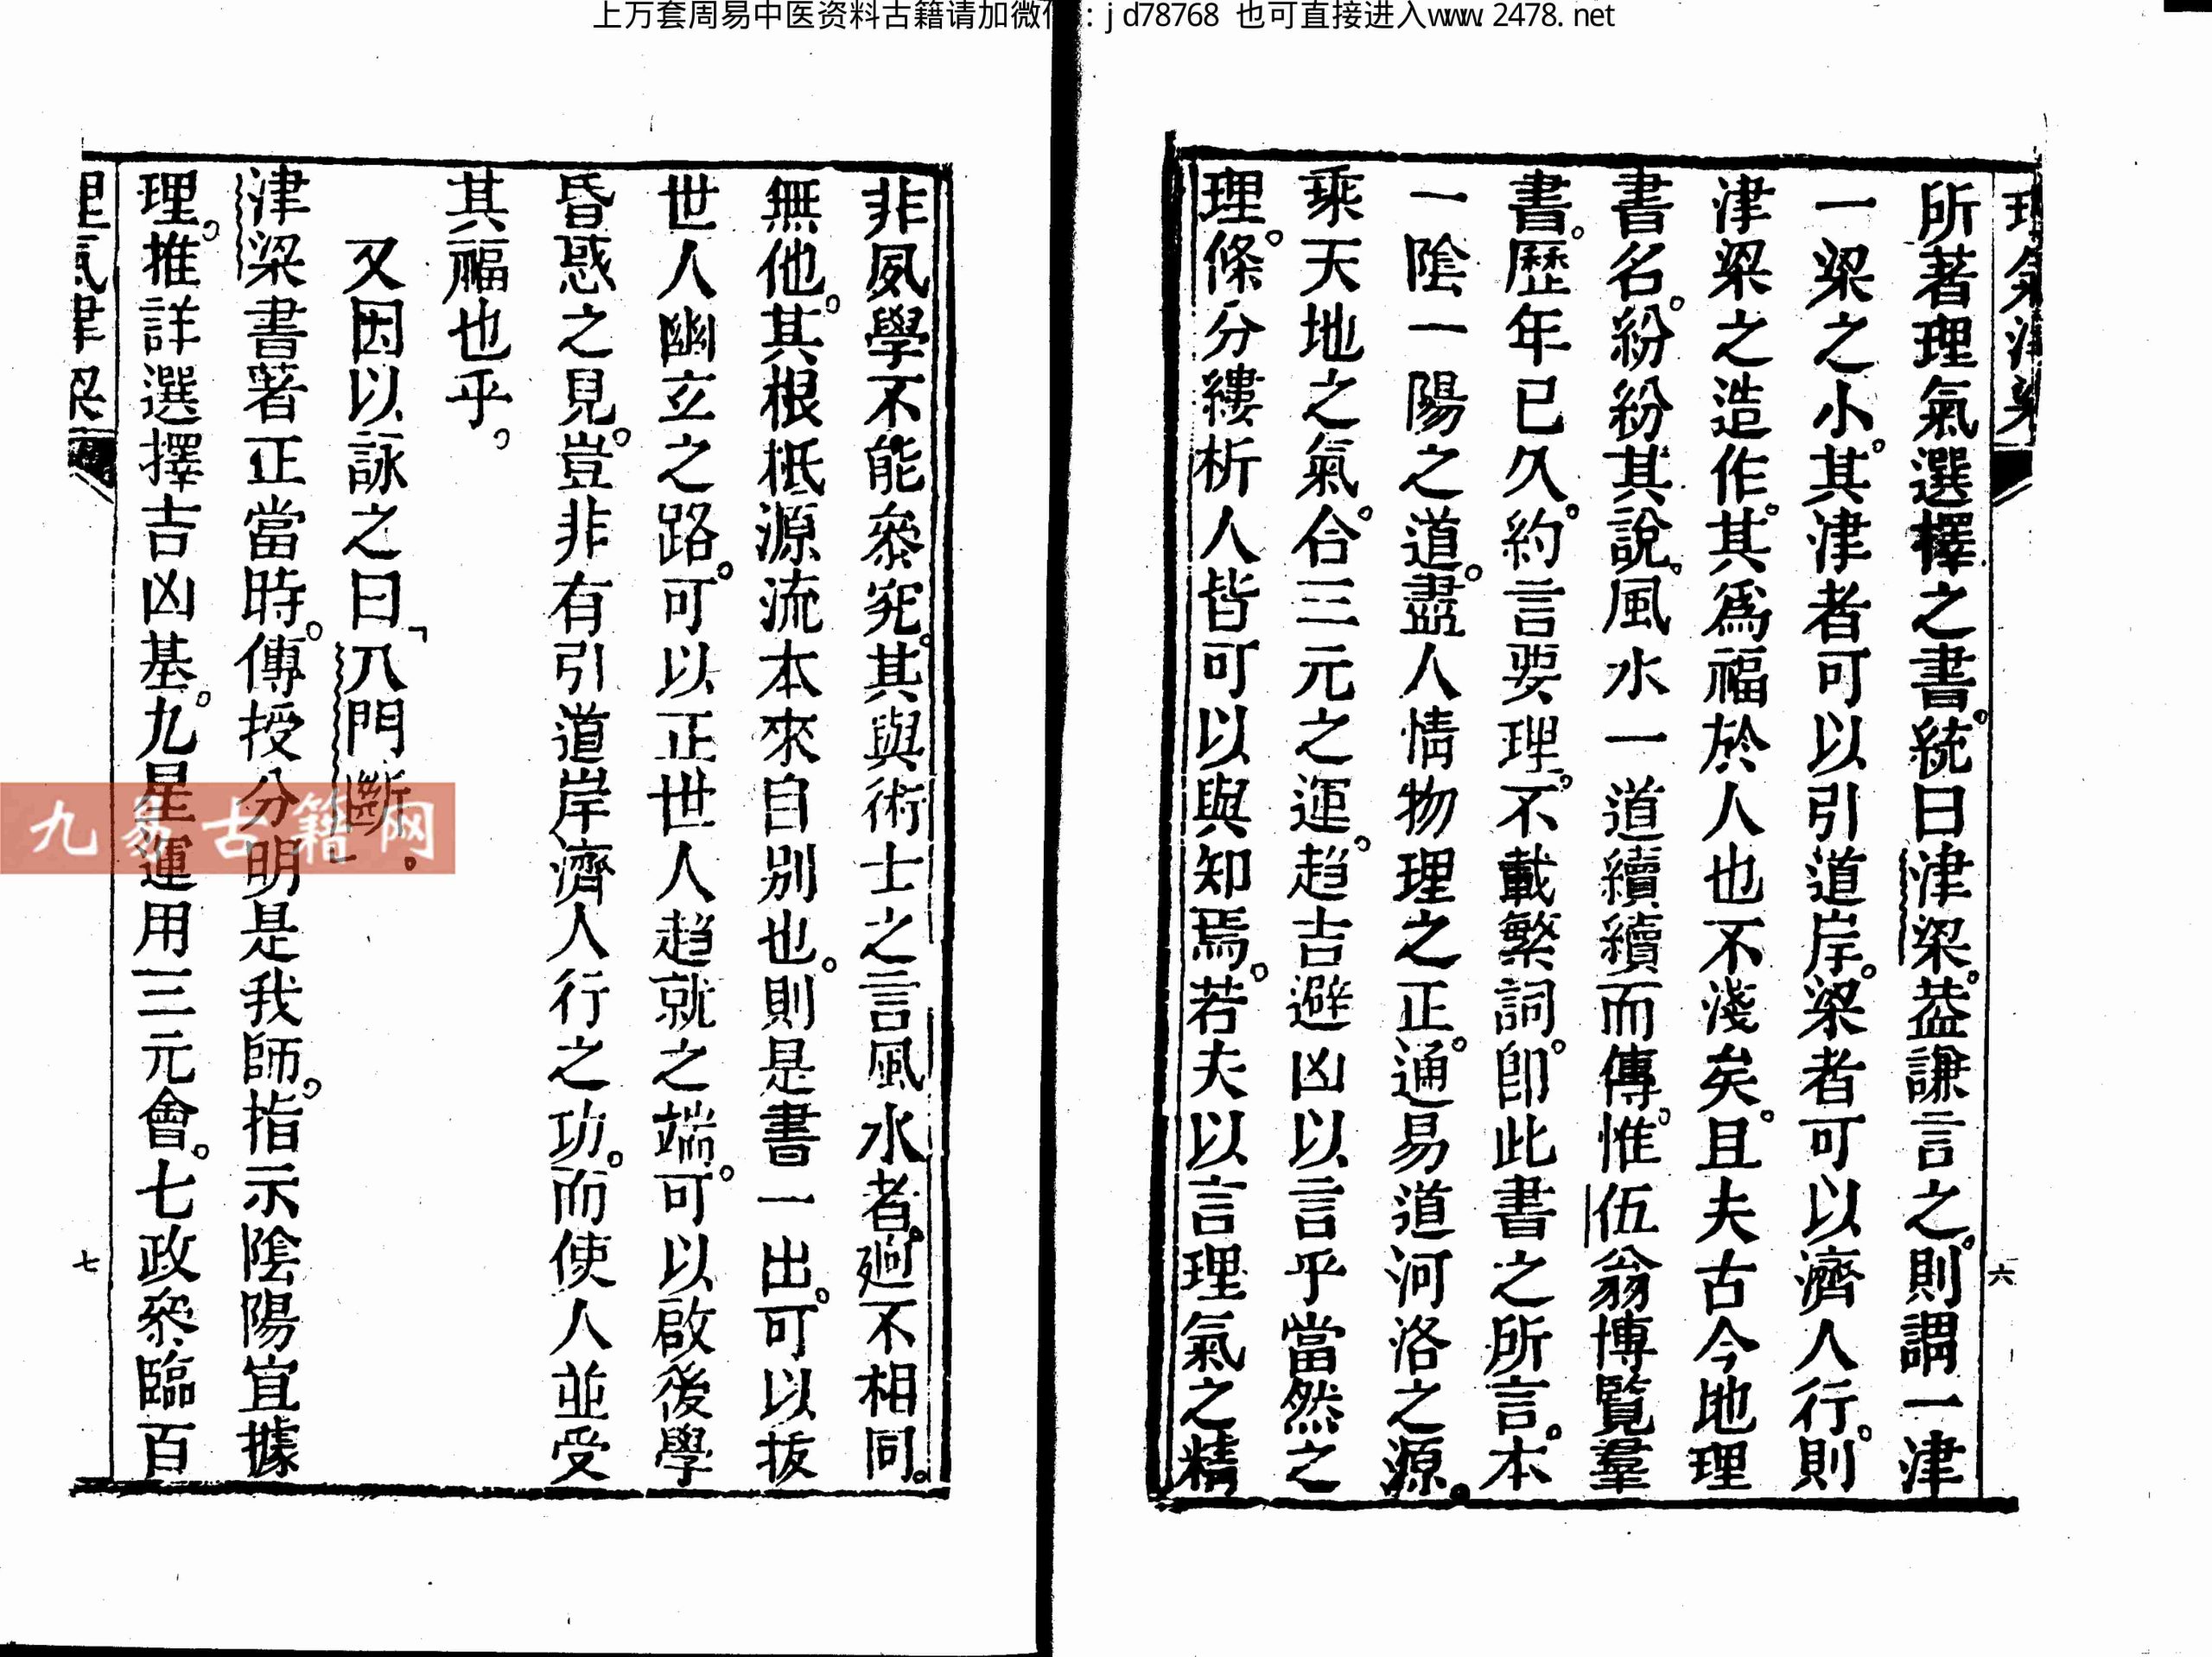 上万套周易中医资料古籍请加微信：jd78768 也可直接进入www.2478.net
理氣津梁
六
所著理氣選擇之書。統曰津梁。葢謙言之。則謂一津
一梁之小。其津者可以引道岸。梁者可以濟人行。則
津梁之造作。其爲福於人也不淺矣。且夫古今地理
書名。紛紛其說。風水一道續續而傳。惟伍翁博覽羣
書。歷年已久。約言要理。不載繁詞。卽此書之所言。本
一陰一陽之道。盡人情物理之正。通易道河洛之源。
乘天地之氣。合三元之運。趋吉避凶以言乎當然之
理。條分縷析人皆可以與知焉。若夫以言理氣之精
非夙學不能叅究。其與術士之言風水者。廻不相同。
無他。其根柢源流本來自別也。則是書一出。可以拔
世人幽立之路。可以正世人趋就之端。可以啟後學
昏惑之見。豈非有引道岸濟人行之功。而使人並受
其福也乎。
又因以詠之曰「八門斷」。
津梁書著正當時。傳授分明是我師。指示陰陽宜據
理。推詳選擇吉凶基。九星運用三元會。七政叅臨百
理氣津梁
七
九易古籍网